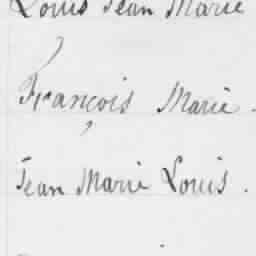 Louis Jean Marie
François Marie.
Jean Marie Louis.